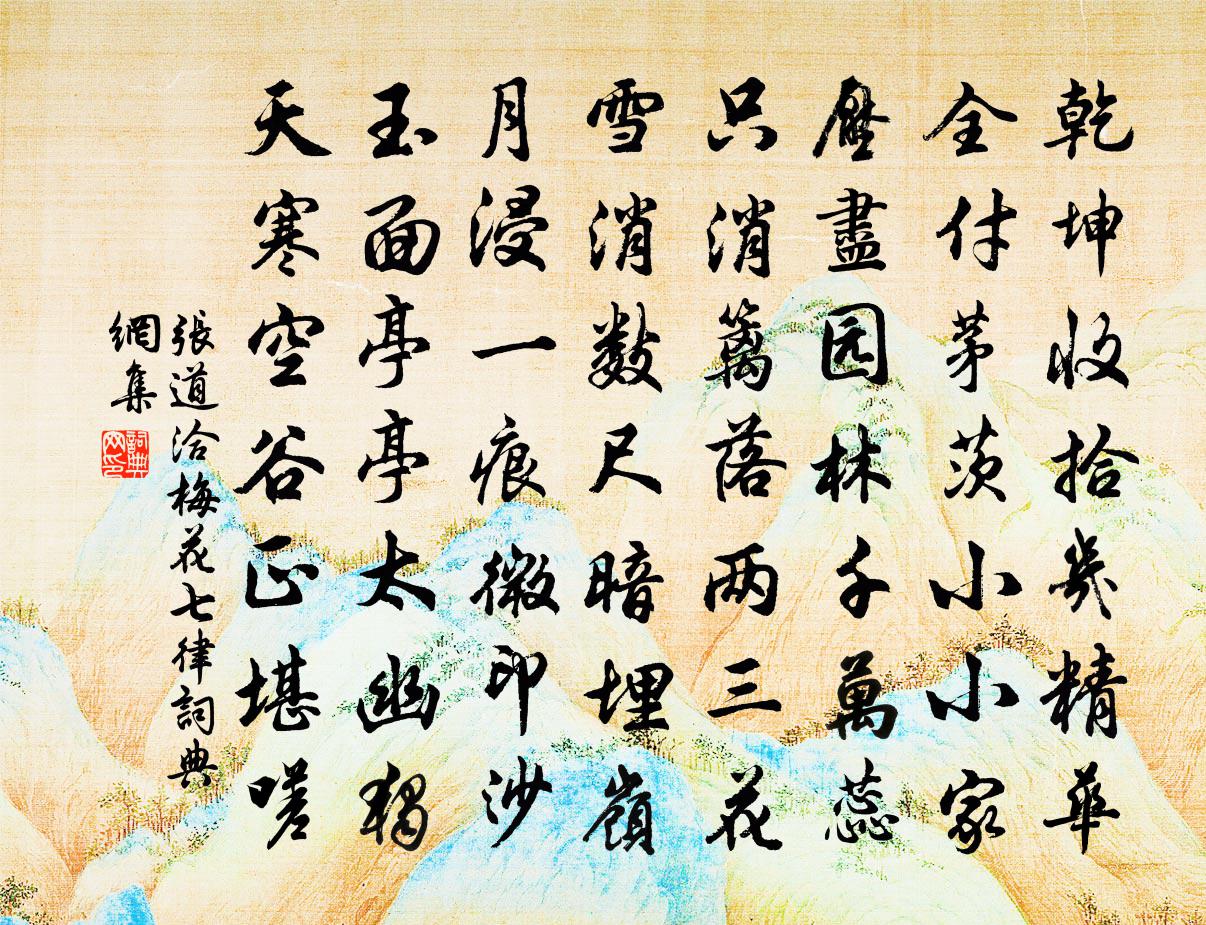 乾坤收拾幾精華
全付茅茨小小家
壓盡园林千萬蕊
只消篱落两三花
雪消數尺暗埋嶺
月浸一痕微印沙
玉面亭亭太幽獨
天寒空谷正堪嗟
張道洽梅花七律詞典
網集
詞典
网印